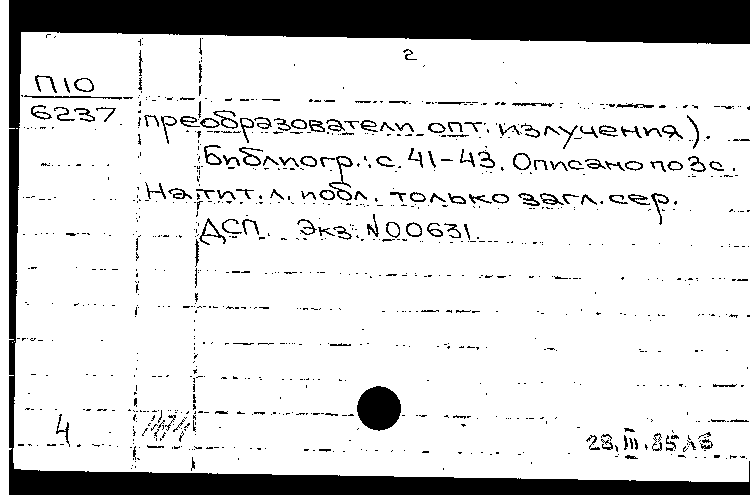 2
П10
6237
преобразователи опт. излучения).
Библиогр.: с. 41-43. Описано по 3 с.
На тит. л. и обл. только загл. сер.
ДСП. Экз. №00631.
4
28.III.85 ЛБ